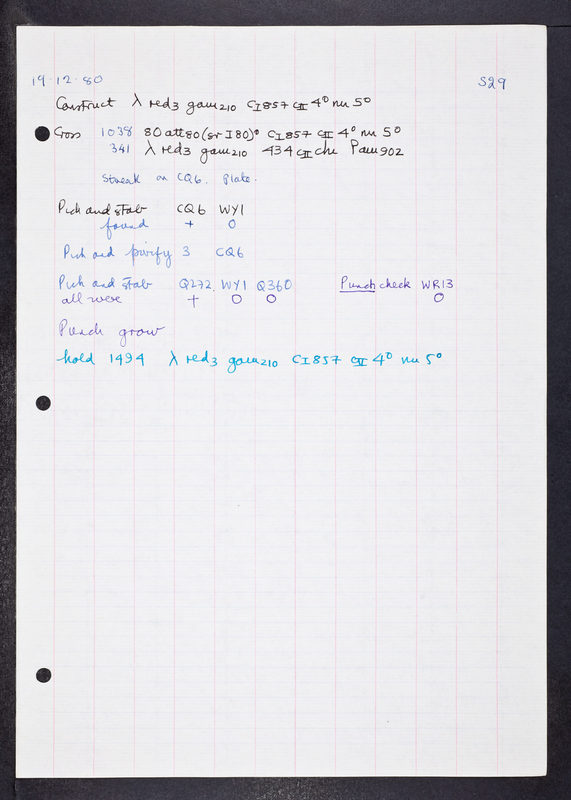 19·12·80 S29
Construct λ red3 gam210 cI857 cII 4° nu 5°
Cross 1038 80 att80 (sr I80)° cI857 cII 4° nu 5°
341 λ red3 gam210 434 cII chi Pam902
Streak on CQ6. plate.
Pick and stab CQ6 WY1
found + 0
Pick and purify 3 CQ6
Pick and stab Q272. WY1 Q360 Punch check WR13
all were + 0 0 0
Punch grow
hold 1494 λ red3 gam210 cI857 cII 4° nu 5°